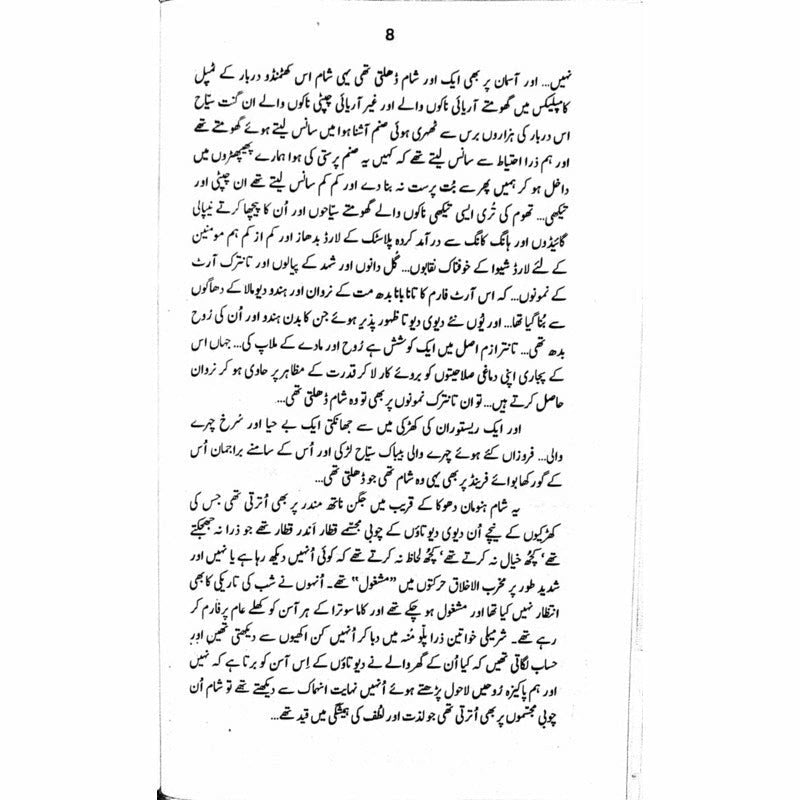 8
نہیں... اور آسمان پر بھی ایک اور شام ڈھلتی تھی یہی شام اس کھٹمنڈو دربار کے ٹمپل
کامپلیکس میں گھومتے آریائی ناکوں والے اور غیر آریائی چپٹی ناکوں والے ان گنت سیّاح
اس دربار کی ہزاروں برس سے ٹھہری ہوئی صنم آشنا ہوا میں سانس لیتے ہوئے گھومتے تھے
اور ہم ذرا احتیاط سے سانس لیتے تھے کہ کہیں یہ صنم پرستی کی ہوا ہمارے پھیپھڑوں میں
داخل ہو کر ہمیں پھر سے بُت پرست نہ بنا دے اور کم کم سانس لیتے تھے ان چپٹی اور
تیکھی... تھوم کی تُری ایسی تیکھی ناکوں والے گھومتے سیّاحوں اور اُن کا پیچھا کرتے نیپالی
گائیڈوں اور ہانگ کانگ سے درآمد کردہ پلاسٹک کے لارڈ بدھاز اور کم از کم ہم مومنین
کے لئے لارڈ شیوا کے خوفناک نقابوں... گل دانوں اور شہد کے پیالوں اور تانترک آرٹ
کے نمونوں... کہ اس آرٹ فارم کا تانا بانا بدھ مت کے نروان اور ہندو دیومالا کے دھاگوں
سے بُنا گیا تھا... اور یُوں نئے دیوی دیوتا ظہور پذیر ہوئے جن کا بدن ہندو اور اُن کی رُوح
بدھ تھی... تانترازم اصل میں ایک کوشش ہے رُوح اور مادے کے ملاپ کی... جہاں اس
کے پجاری اپنی دماغی صلاحیتوں کو بروئے کار لا کر قدرت کے مظاہر پر حاوی ہو کر نروان
حاصل کرتے ہیں... تو ان تانترک نمونوں پر بھی تو وہ شام ڈھلتی تھی...
اور ایک ریستوران کی کھڑکی میں سے جھانکتی ایک بے حیا اور سُرخ چہرے
والی... فروزاں کئے ہوئے چہرے والی بیباک سیّاح لڑکی اور اُس کے سامنے براجمان اُس
کے گورکھا بوائے فرینڈ پر بھی یہی وہ شام تھی جو ڈھلتی تھی...
یہ شام ہنومان دھوکا کے قریب میں جگن ناتھ مندر پر بھی اُترتی تھی جس کی
کھڑکیوں کے نیچے اُن دیوی دیوتاؤں کے چوبی مجسّمے قطار اندر قطار تھے جو ذرا نہ جھجکتے
تھے‘ کچھ خیال نہ کرتے تھے‘ کچھ لحاظ نہ کرتے تھے کہ کوئی اُنہیں دیکھ رہا ہے یا نہیں اور
شدید طور پر مخرب الاخلاق حرکتوں میں ”مشغول“ تھے۔ اُنہوں نے شب کی تاریکی کا بھی
انتظار نہیں کیا تھا اور مشغول ہو چکے تھے اور کاما سوترا کے ہر آسن کو کھلے عام پرفارم کر
رہے تھے۔ شرمیلی خواتین ذرا پلّو مُنہ میں دبا کر اُنہیں کن اکھیوں سے دیکھتی تھیں اور
حساب لگاتی تھیں کہ کیا اُن کے گھر والے نے دیوتاؤں کے اِس آسن کو برتا ہے کہ نہیں
اور ہم پاکیزہ رُوحیں لاحول پڑھتے ہوئے اُنہیں نہایت انہماک سے دیکھتے تھے تو شام اُن
چوبی مجسّموں پر بھی اُترتی تھی جو لذت اور لُطف کی ہمیشگی میں قید تھے...